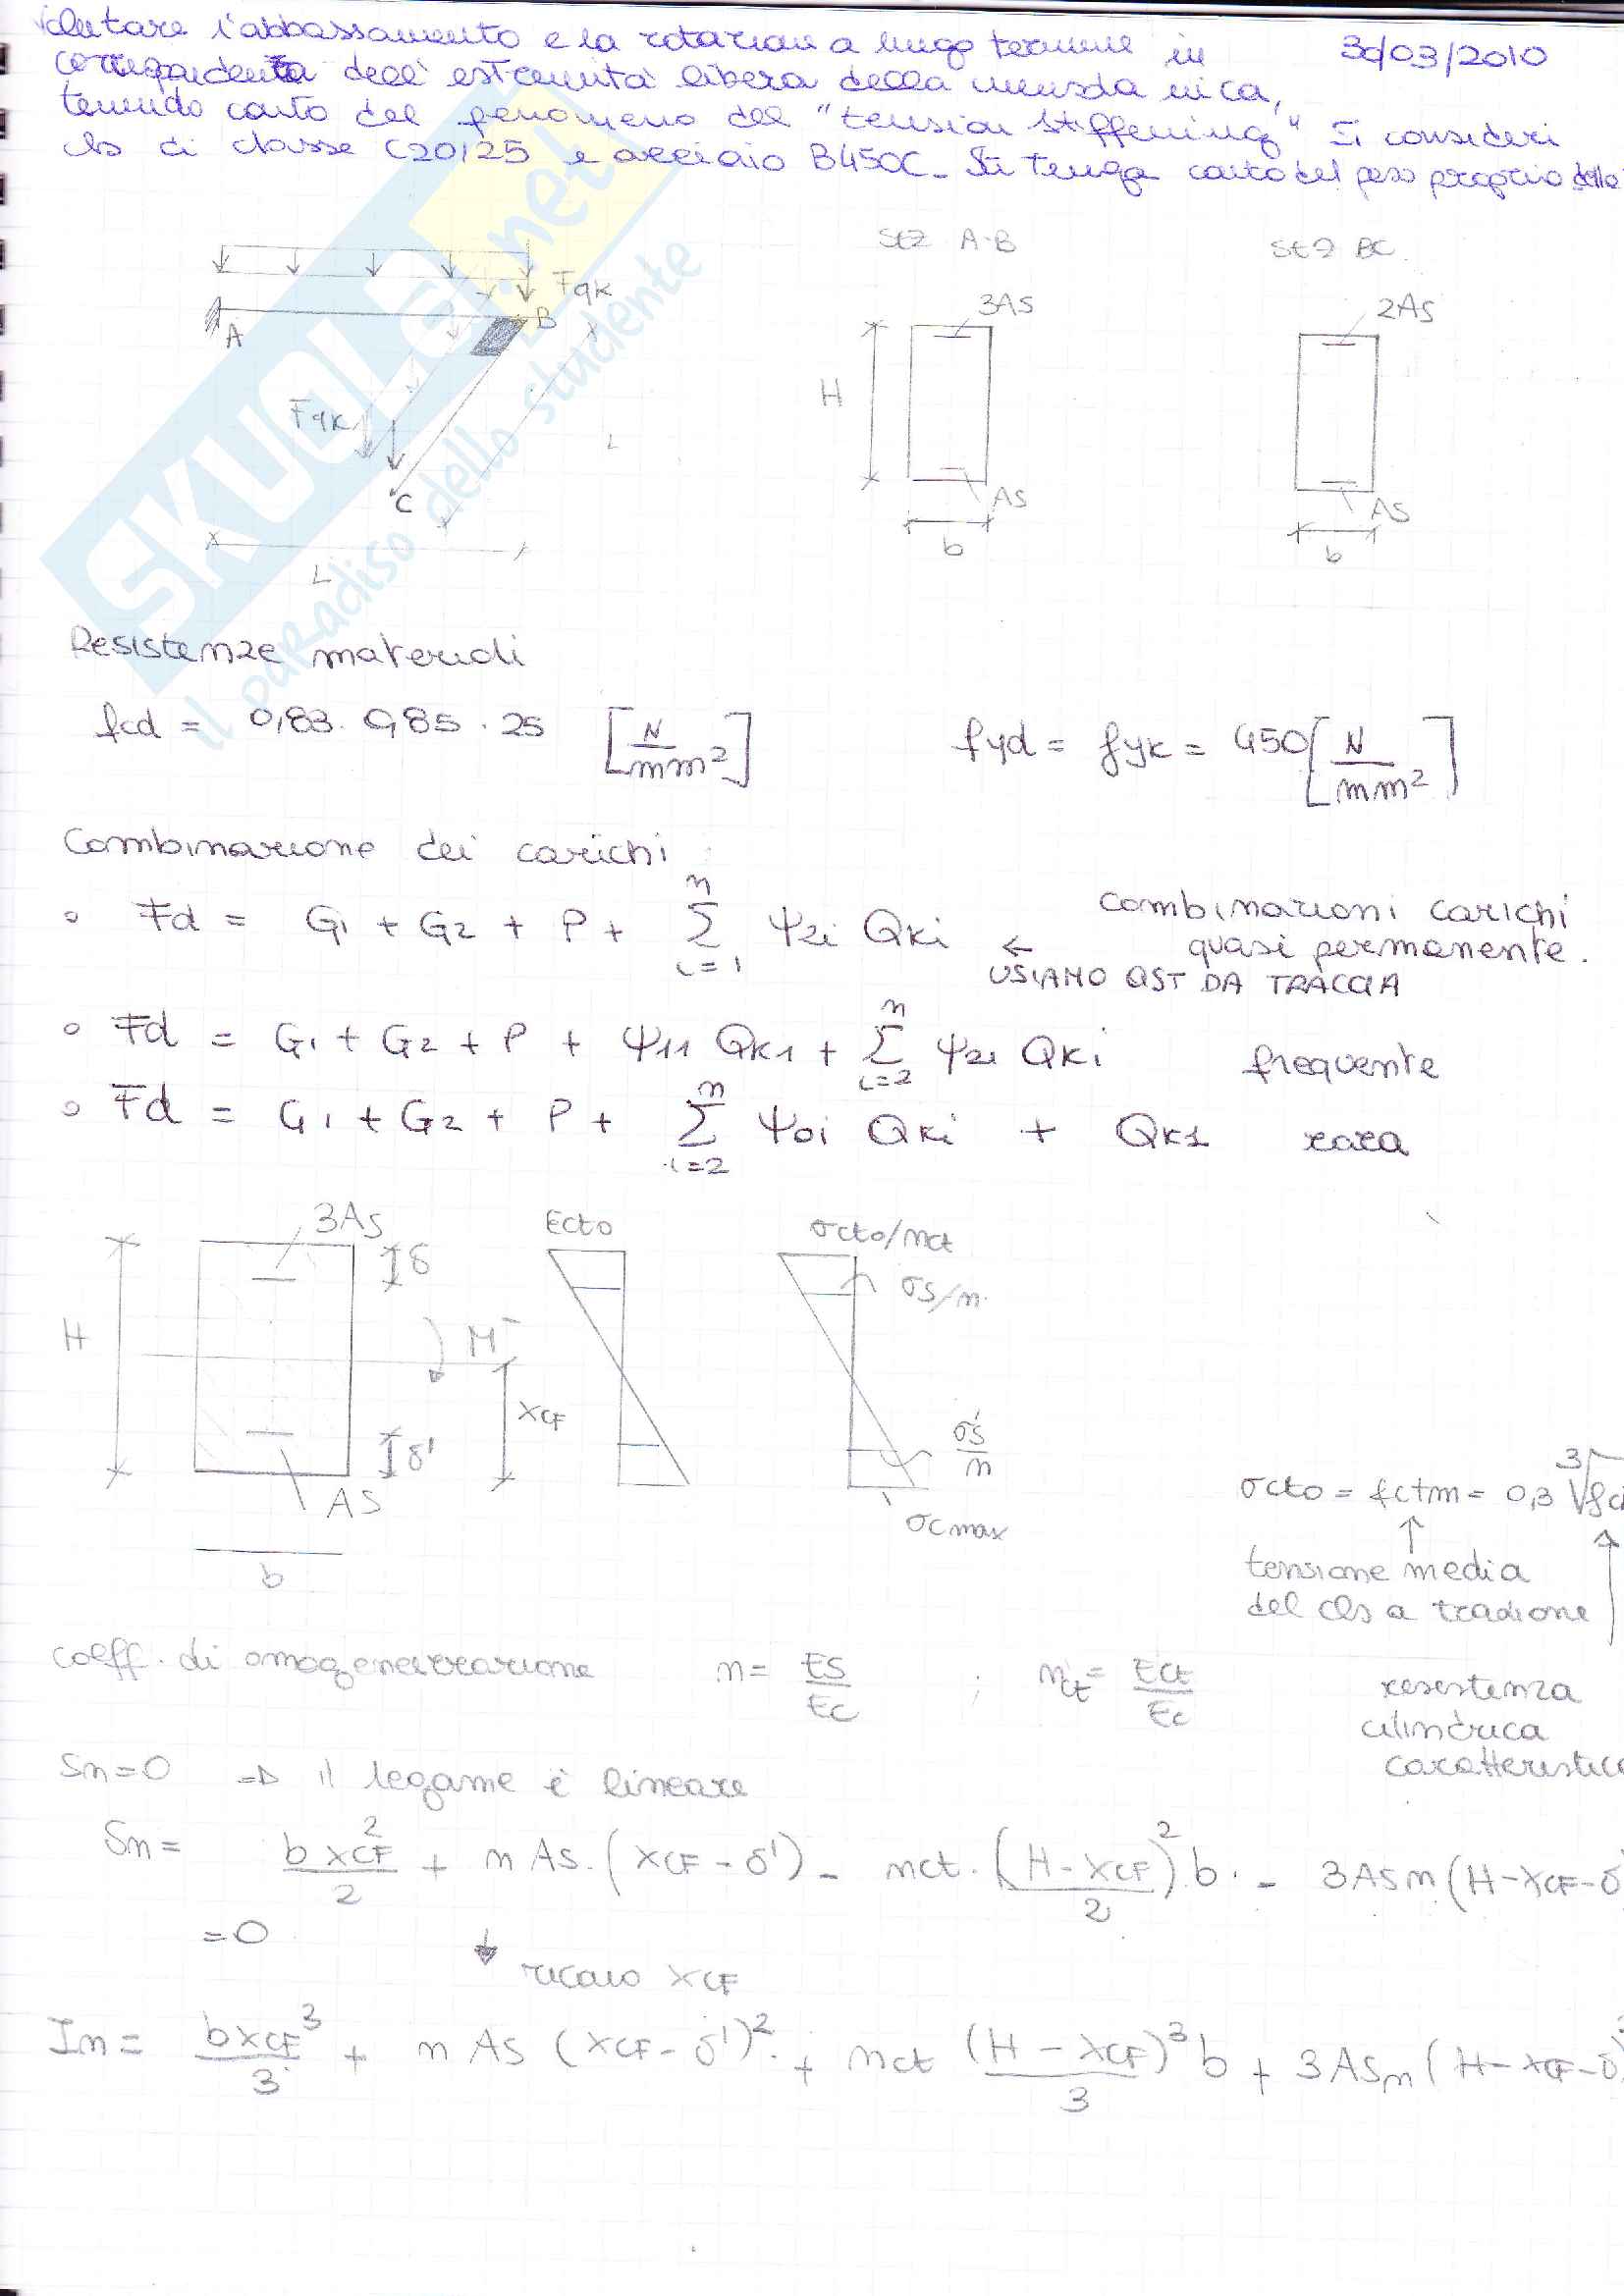 valutare l'abbassamento e la rotazione a lungo termine in 30/03/2010
corrispondenza dell'estremità libera della mensola in ca,
tenendo conto del fenomeno del "tension stiffening" Si consideri
cls di classe C20/25 e acciaio B450C_ Si tenga conto del peso proprio della
SKUOLA.net
il paradiso dello studente
Sez A-B
Sez BC.
Fqk
A
B
3AS
2AS
H
Fqk
L
C
AS
AS
b
b
L
Resistenze materiali
fcd = 0,83 · 0,85 · 25 [N/mm²]
fyd = fyk = 450 [N/mm²]
Combinazione dei carichi
◦ Fd = G1 + G2 + P + Σ(i=1, n) Ψ2i Qki ← combinazioni carichi quasi permanente.
USIAMO QST DA TRACCIA
◦ Fd = G1 + G2 + P + Ψ11 Qk1 + Σ(i=2, n) Ψ2i Qki frequente
◦ Fd = G1 + G2 + P + Σ(i=2, n) Ψ0i Qki + Qk1 rara
3AS
δ
H
M⁻
xCF
δ'
AS
b
Ecto
σcto/nct
σs/n.
σ's/n
σcmax
σcto = fctm = 0,3 ∛
tensione media
del cls a trazione
coeff. di omogeneizzazione n = ES/EC ; nct = Ect/Ec
resistenza
cilindrica
caratteristica
Sn=0 ⇒ il legame è lineare
Sn = b xCF²/2 + n As·(xCF - δ') - nct·(H-xCF)²/2 b· - 3ASn(H-xCF-δ
=0 ↓ ricavo xCF
In = b xCF³/3 + n AS (xCF - δ')² + nct (H - xCF)³/3 b + 3ASn (H-xCF-δ